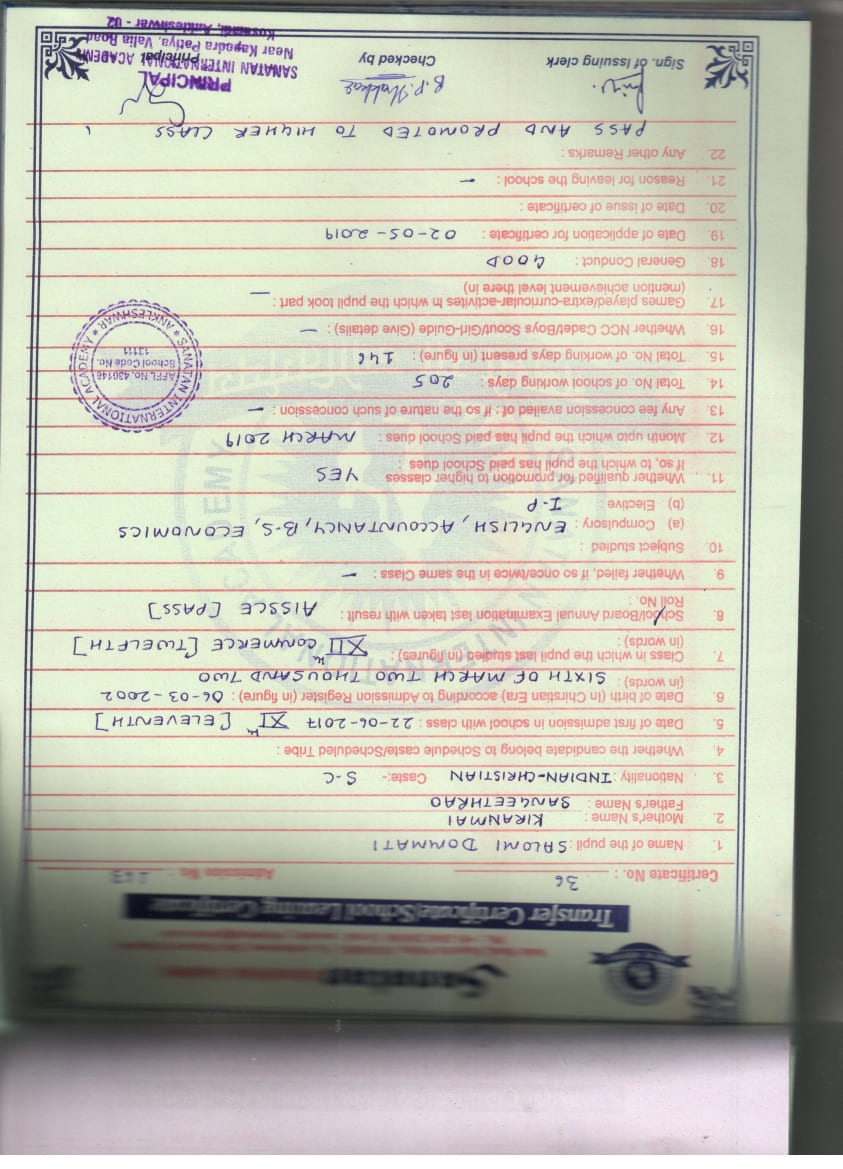 Transfer Certificate/School Leaving Certificate
Certificate No. : 36 Admission No. :
1. Name of the pupil : SALOMI DOMMATI
2. Mother's Name : KIRANMAI
Father's Name : SANGEETHRAO
3. Nationality : INDIAN-CHRISTIAN Caste:- S-C
4. Whether the candidate belong to Schedule caste/Scheduled Tribe :
5. Date of first admission in school with class : 22-06-2017 XIth [ELEVENTH]
6. Date of birth (in Christian Era) according to Admission Register (in figure) : 06-03-2002
(in words) : SIXTH OF MARCH TWO THOUSAND TWO
7. Class in which the pupil last studied (in figures) : XIIth COMMERCE [TWELFTH]
(in words) :
8. School/Board Annual Examination last taken with result : AISSCE [PASS]
Roll No :
9. Whether failed, if so once/twice in the same Class : -
10. Subject studied :
(a) Compulsory : ENGLISH, ACCOUNTANCY, B-S, ECONOMICS
(b) Elective : I-P
11. Whether qualified for promotion to higher classes YES
If so, to which the pupil has paid School dues :
12. Month upto which the pupil has paid School dues : MARCH 2019
13. Any fee concession availed of : if so the nature of such concession : -
14. Total No. of school working days : 205
15. Total No. of working days present (in figure) : 146
16. Whether NCC Cadet/Boys Scout/Girl-Guide (Give details) : -
17. Games played/extra-curricular-activites in which the pupil took part : -
(mention achievement level there in)
18. General Conduct : GOOD
19. Date of application for certificate : 02-05-2019
20. Date of issue of certificate :
21. Reason for leaving the school : -
22. Any other Remarks :
PASS AND PROMOTED TO HIGHER CLASS
Sign. of issuing clerk Checked by Principal
PRINCIPAL
SANATAN INTERNATIONAL ACADEMY
Near Kapodra Patiya, Valia Road
Kosamdi, Ankleshwar - 02
SANATAN INTERNATIONAL ACADEMY ★ ANKLESHWAR ★
AFFI. No. 430146
School Code No.
13111
INTERNATIONAL ACADEMY